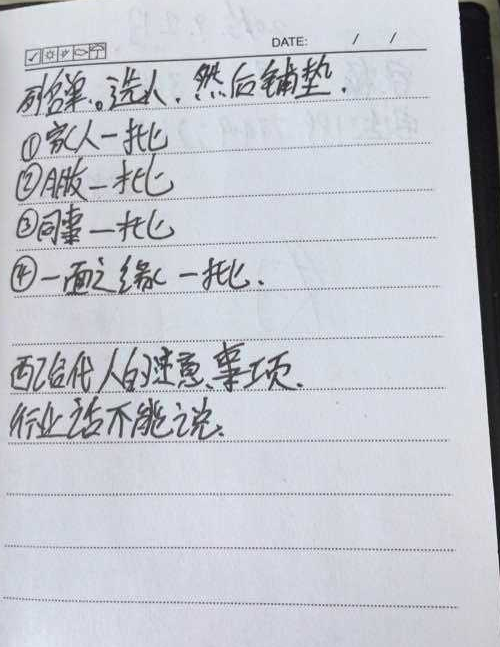 DATE: / /
列名单。选人、然后铺垫.
①家人一批
②朋友一批
③同事一批
④一面之缘一批.
配合代人的注意事项.
行业话不能说.